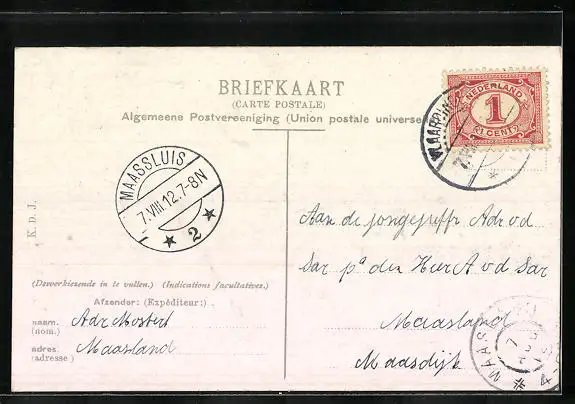 BRIEFKAART
(CARTE POSTALE)
Algemeene Postvereeniging (Union postale universelle)
NEDERLAND
1
1 CENT
VLAARDIN
7.VII
MAASSLUIS
7.VIII.12.7-8N
2
K. D. J.
Aan de jongejuffr Adr v d
Sar pa den Heer A v d Sar
Maasland
Maasdijk
(Desverkiezende in te vullen.) (Indications facultatives.)
Afzender: (Expéditeur:)
naam. Adr Mostert
(nom.)
adres Maasland
(adresse)
MAAS
7